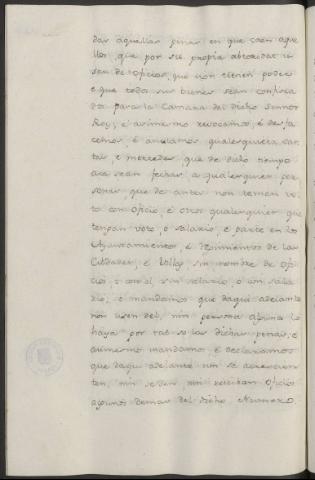 dar aquellas penas en que caen aque
llos, que por su propia abtoridat u
san de oficios, que non tienen poder
e que todos sus bienes sean confisca
dos para la Camara del dicho Sennor
Rey, é asimesmo revocamos, é desfa
cemos, é anulamos qualesquiera car
tas, e mercedes que de dicho tiempo
acá sean fechas, a qualesquier per
sonas, que de antes non tenian vo
to con Oficio, é otros qualesquier que
tengan voto, o salario, e parte en los
Ayuntamientos, é Regimientos de las
Cibdades, é Villas sin nombre de Ofi
cio, o con el, sin salario, o con sala
rio; é mandamos que daqui adelante
non usen del, nin persona alguna lo
haya por tal so las dichas penas, é
asimesmo mandamos, é declaramos
que daqui adelante nin se acrecien
ten, nin se den, nin resciban Oficios
algunos demas del dicho Numero.